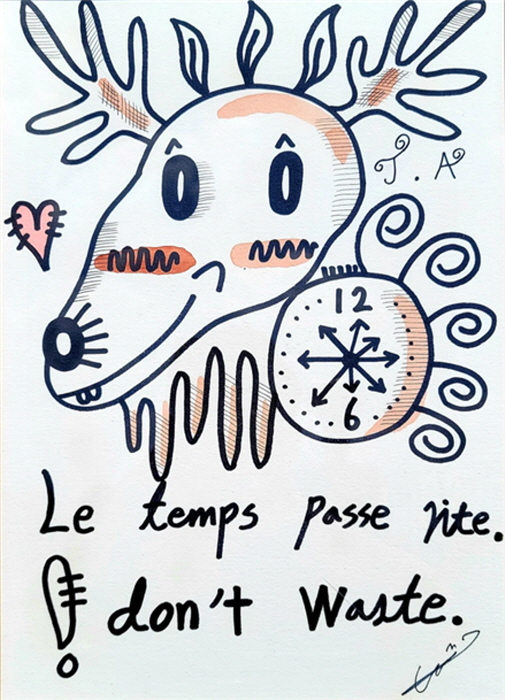 J. A
12
6
Le temps passe vite.
! don't waste.